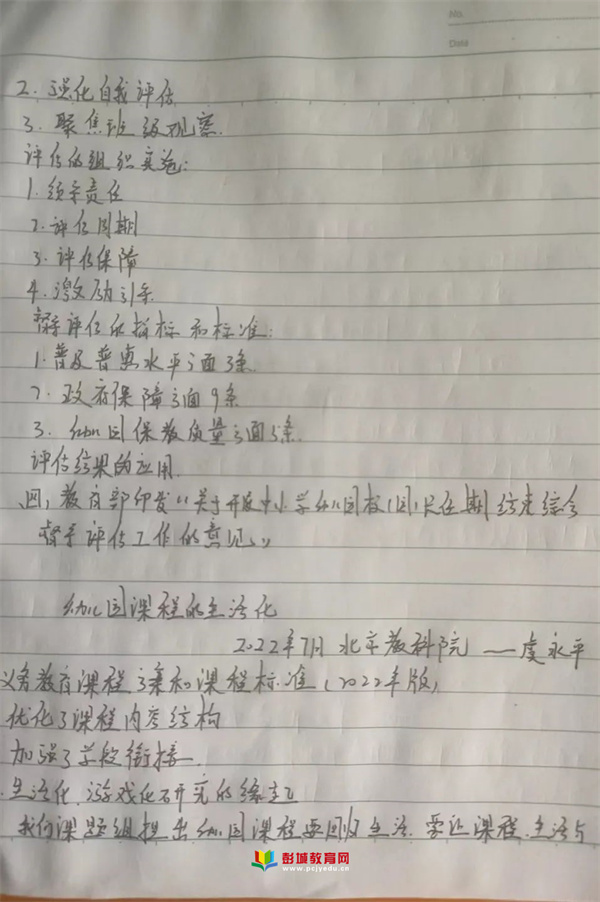 No.
Date
2. 强化自我评估
3. 聚焦班级观察.
评估的组织实施:
1. 领导责任
2. 评估周期
3. 评估保障
4. 激励引条
督导评估的指标和标准:
1. 普及普惠水平方面3条
2. 政府保障方面9条
3. 幼儿园保教质量方面5条.
评估结果的应用.
四, 教育部印发《关于开展中小学幼儿园校(园)长任期结束综合
督导评估工作的意见》
幼儿园课程的生活化
2022年7月 北京教科院 — 虞永平
义务教育课程方案和课程标准(2022年版)
优化了课程内容结构
加强了学段衔接
生活化、游戏化研究的缘起
我们课题组提出幼儿园课程要回归生活. 要让课程、生活与
彭城教育网
www.pcjyedu.cn